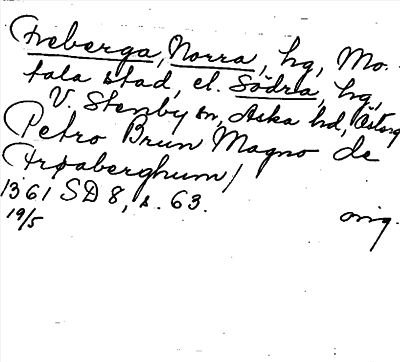 Freberga, Norra, hg, Mo-
tala stad, el. Södra, hg,
V. Stenby sn, Aska hd, Österg
Petro Brun Magno de
Frøaberghum/
1361 SD 8, s. 63.
19/5 orig.